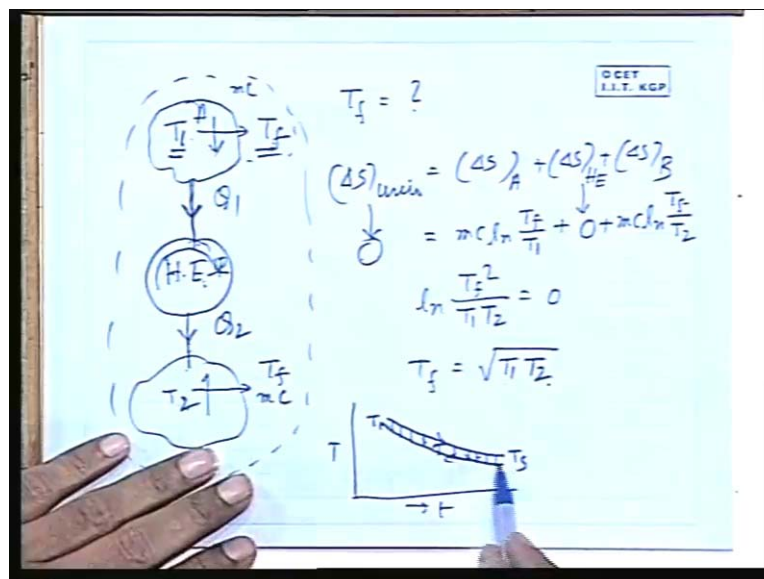 © CET
I.I.T. KGP
mC
A
T1 → Tf
Q1
H.E.
Q2
T2 → Tf
mC
Tf = ?
(ΔS)univ = (ΔS)A + (ΔS)HE + (ΔS)B
0 = mc ln Tf/T1 + 0 + mc ln Tf/T2
ln Tf²/T1 T2 = 0
Tf = √T1 T2
T
T1
Tf
→ t